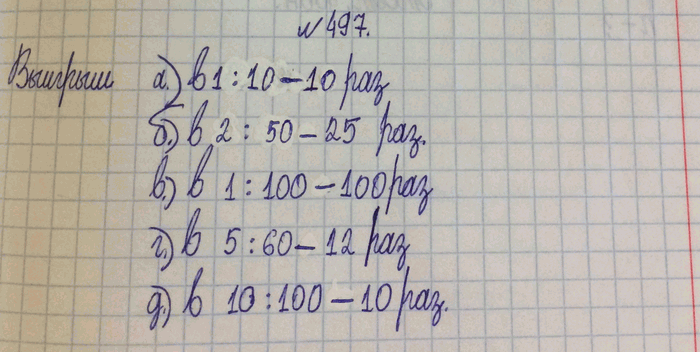 № 497.
Выигрыш а.) в 1 : 10 – 10 раз
б.) в 2 : 50 – 25 раз.
в.) в 1 : 100 – 100 раз
г.) в 5 : 60 – 12 раз
д.) в 10 : 100 – 10 раз.